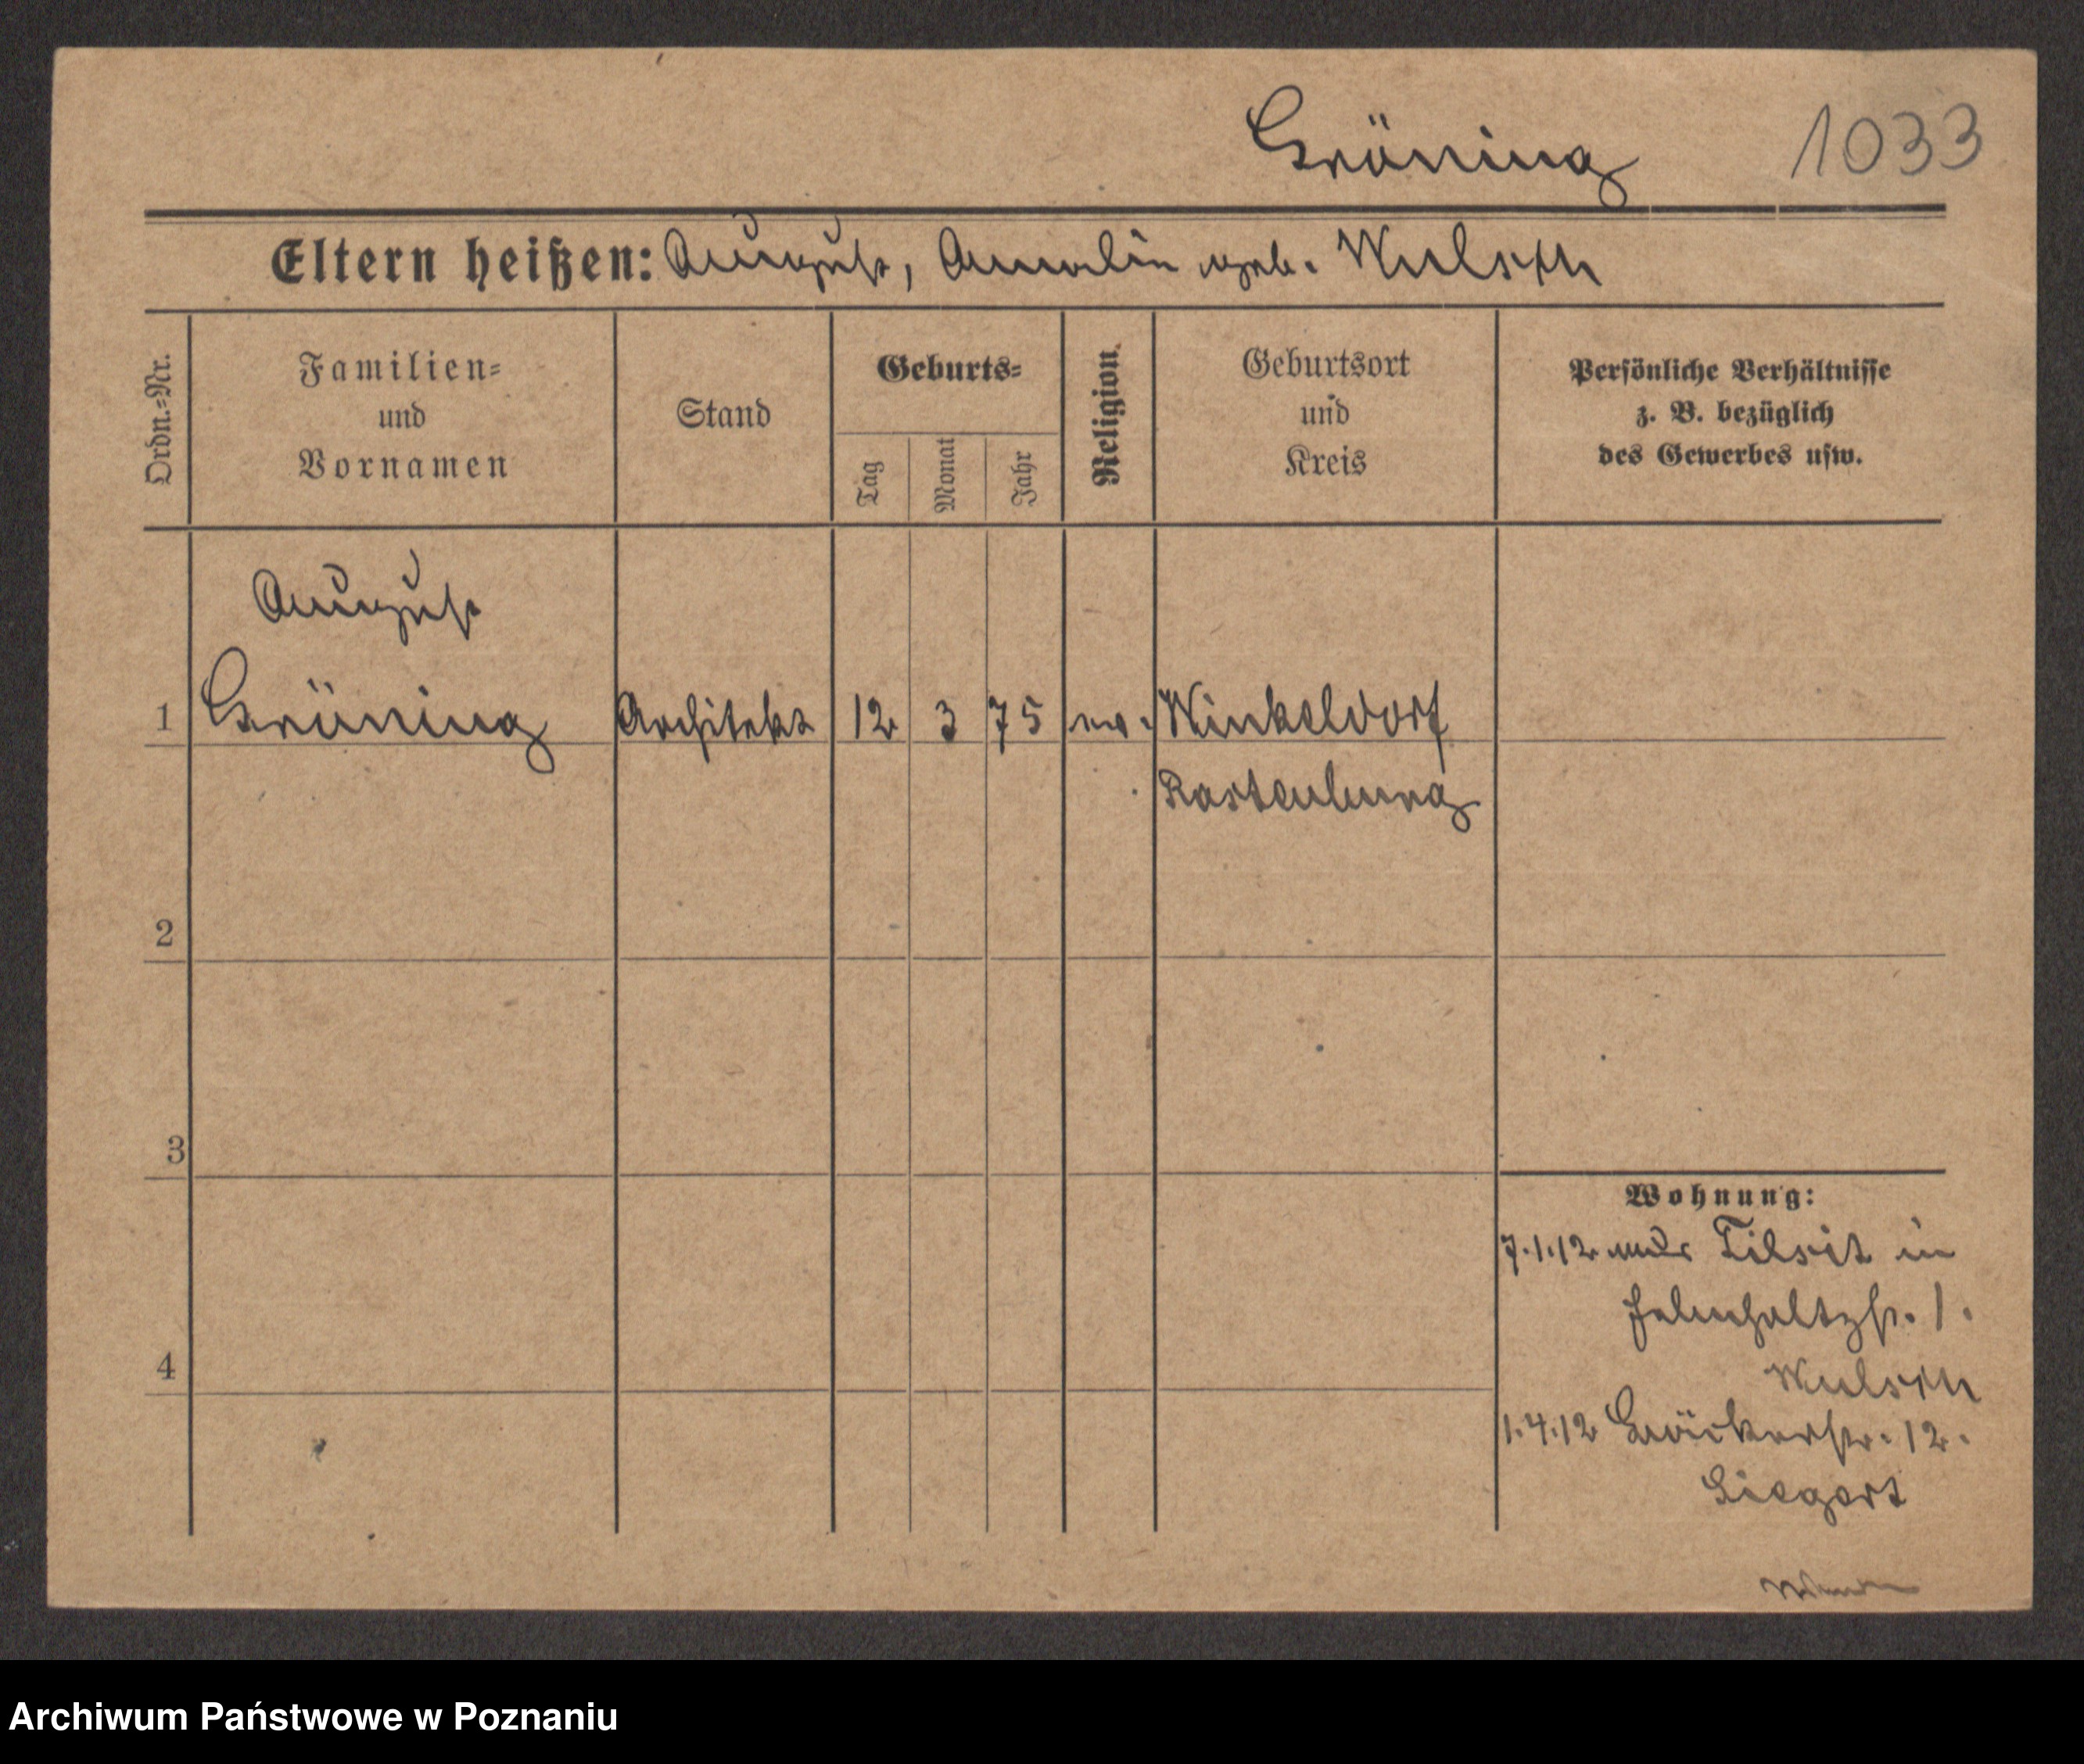 Gröning 1033
Eltern heißen: August, Amalie geb. Wulsch
Ordn.-Nr.
Familien-
und
Vornamen
Stand
Geburts-
Tag
Monat
Jahr
Religion.
Geburtsort
und
Kreis
Persönliche Verhältnisse
z. B. bezüglich
des Gewerbes usw.
August
1 Gröning Architekt 12 3 75 ev. Winkeldorf
Rastenburg
2
3
4
Wohnung:
7.1.12 aus Tilsit in
1.
1.4.12 12.
Siegert
Archiwum Państwowe w Poznaniu